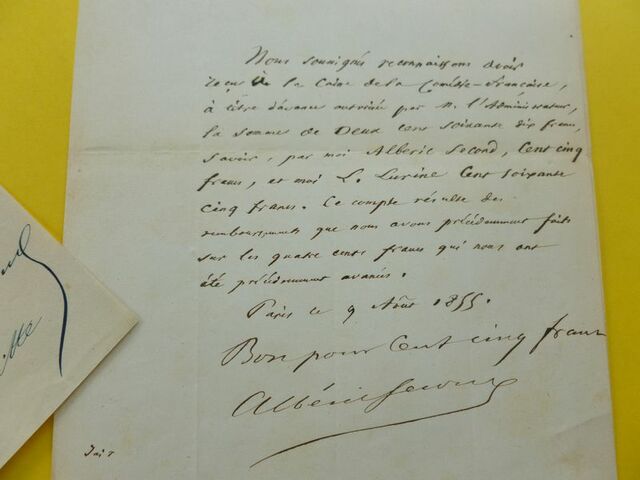 Nous soussignés reconnaissons avoir
reçu de la Caisse de la Comédie-Française,
à titre d'avance autorisée par M. l'Administrateur,
la somme de Deux cent soixante dix francs,
savoir, par moi Albéric Second, Cent cinq
francs, et moi L. Lurine Cent soixante
cinq francs. Ce compte résulte des
remboursements que nous avons précédemment faits
sur les quatre cents francs qui nous ont
été précédemment avancés.
Paris le 9 Août 1855.
Bon pour Cent cinq francs
Albéric Second